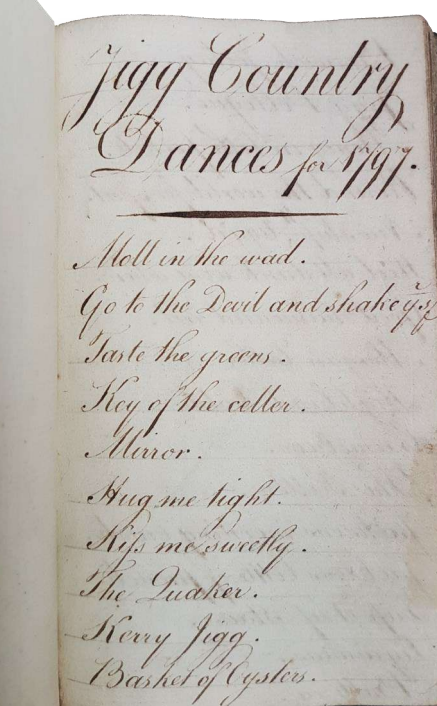 Jigg Country
Dances for 1797.
Moll in the wad.
Go to the Devil and shake yrself
Taste the greens.
Key of the celler.
Mirror.
Hug me tight.
Kiss me sweetly.
The Quaker.
Kerry Jigg.
Basket of Oysters.